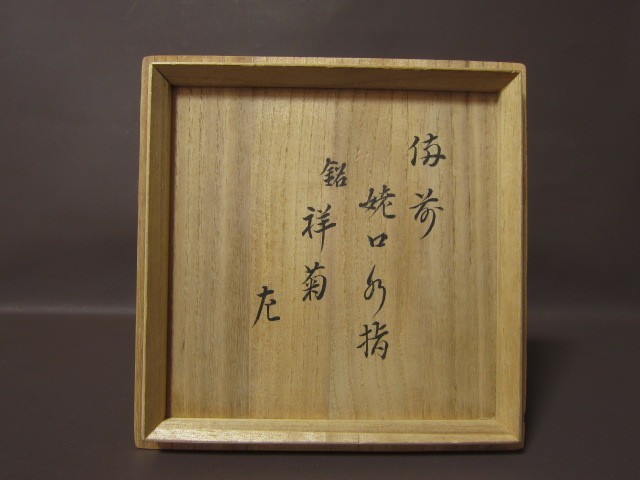 備前
姥口水指
銘
祥菊
左